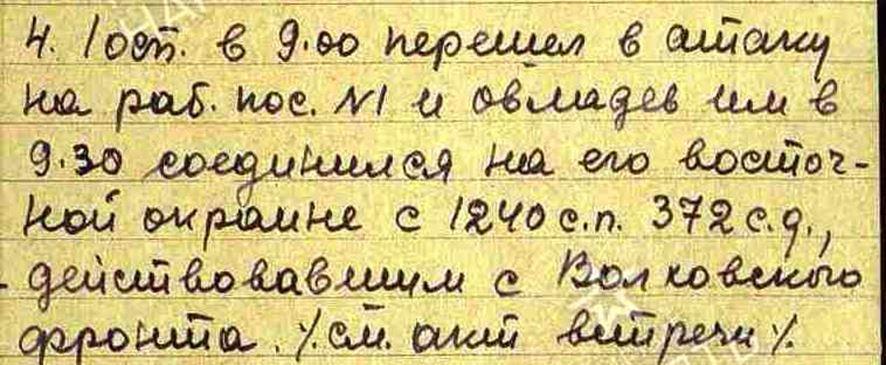 4. 1 осп. в 9.00 перешел в атаку
на раб. пос. №1 и овладев им в
9.30 соединился на его восточ-
ной окраине с 1240 с.п. 372 с.д.,
действовавшим с Волховского
фронта. /. см. акт встречи /.